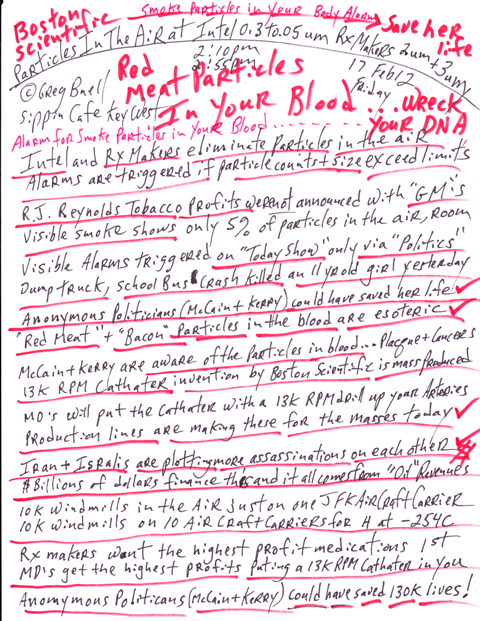 Smoke Particles in Your Body Alarms
Boston Scientific
Save her life
Particles In The Air at Intel 0.3 to.05um Rx Makers 2um + 3um
2:10pm
2:55pm
17 Feb 12
Friday
© Greg Buell
Sippin Cafe Key West
Red Meat Particles
In Your Blood... Wreck Your DNA
Alarm for Smoke Particles in Your Blood
Intel and Rx Makers eliminate Particles in the air
Alarms are triggered if particle counts + size exceed limits
R.J. Reynolds Tobacco profits were not announced with "GM's
Visible smoke shows only 5% of particles in the air, room
Visible Alarms triggered on "Today Show" only via "Politics"
Dump truck, School Bus Crash killed an 11 yr old girl yesterday
Anonymous Politicians (McCain + Kerry) could have saved her life
"Red Meat" + "Bacon" Particles in the blood are esoteric
McCain + Kerry are aware of the Particles in blood... Plaque + Cancers
13K RPM Cathater invention by Boston Scientific is mass produced
MD's will put the Cathater with a 13K RPM drill up your Arteries
Production lines are making these for the masses today
Iran + Isralis are plotting more assassinations on each other
$ Billions of dollars finance this and it all comes from "Oil" Revenues
10K windmills in the Air just on one JFK AirCraft Carrier
10K windmills on 10 AirCraft Carriers for H at -254C
Rx makers want the highest profit medications 1st
MD's get the highest profits puting a 13K RPM Cathater in you
Anonymous Politicans (McCain + Kerry) could have saved 130K lives!